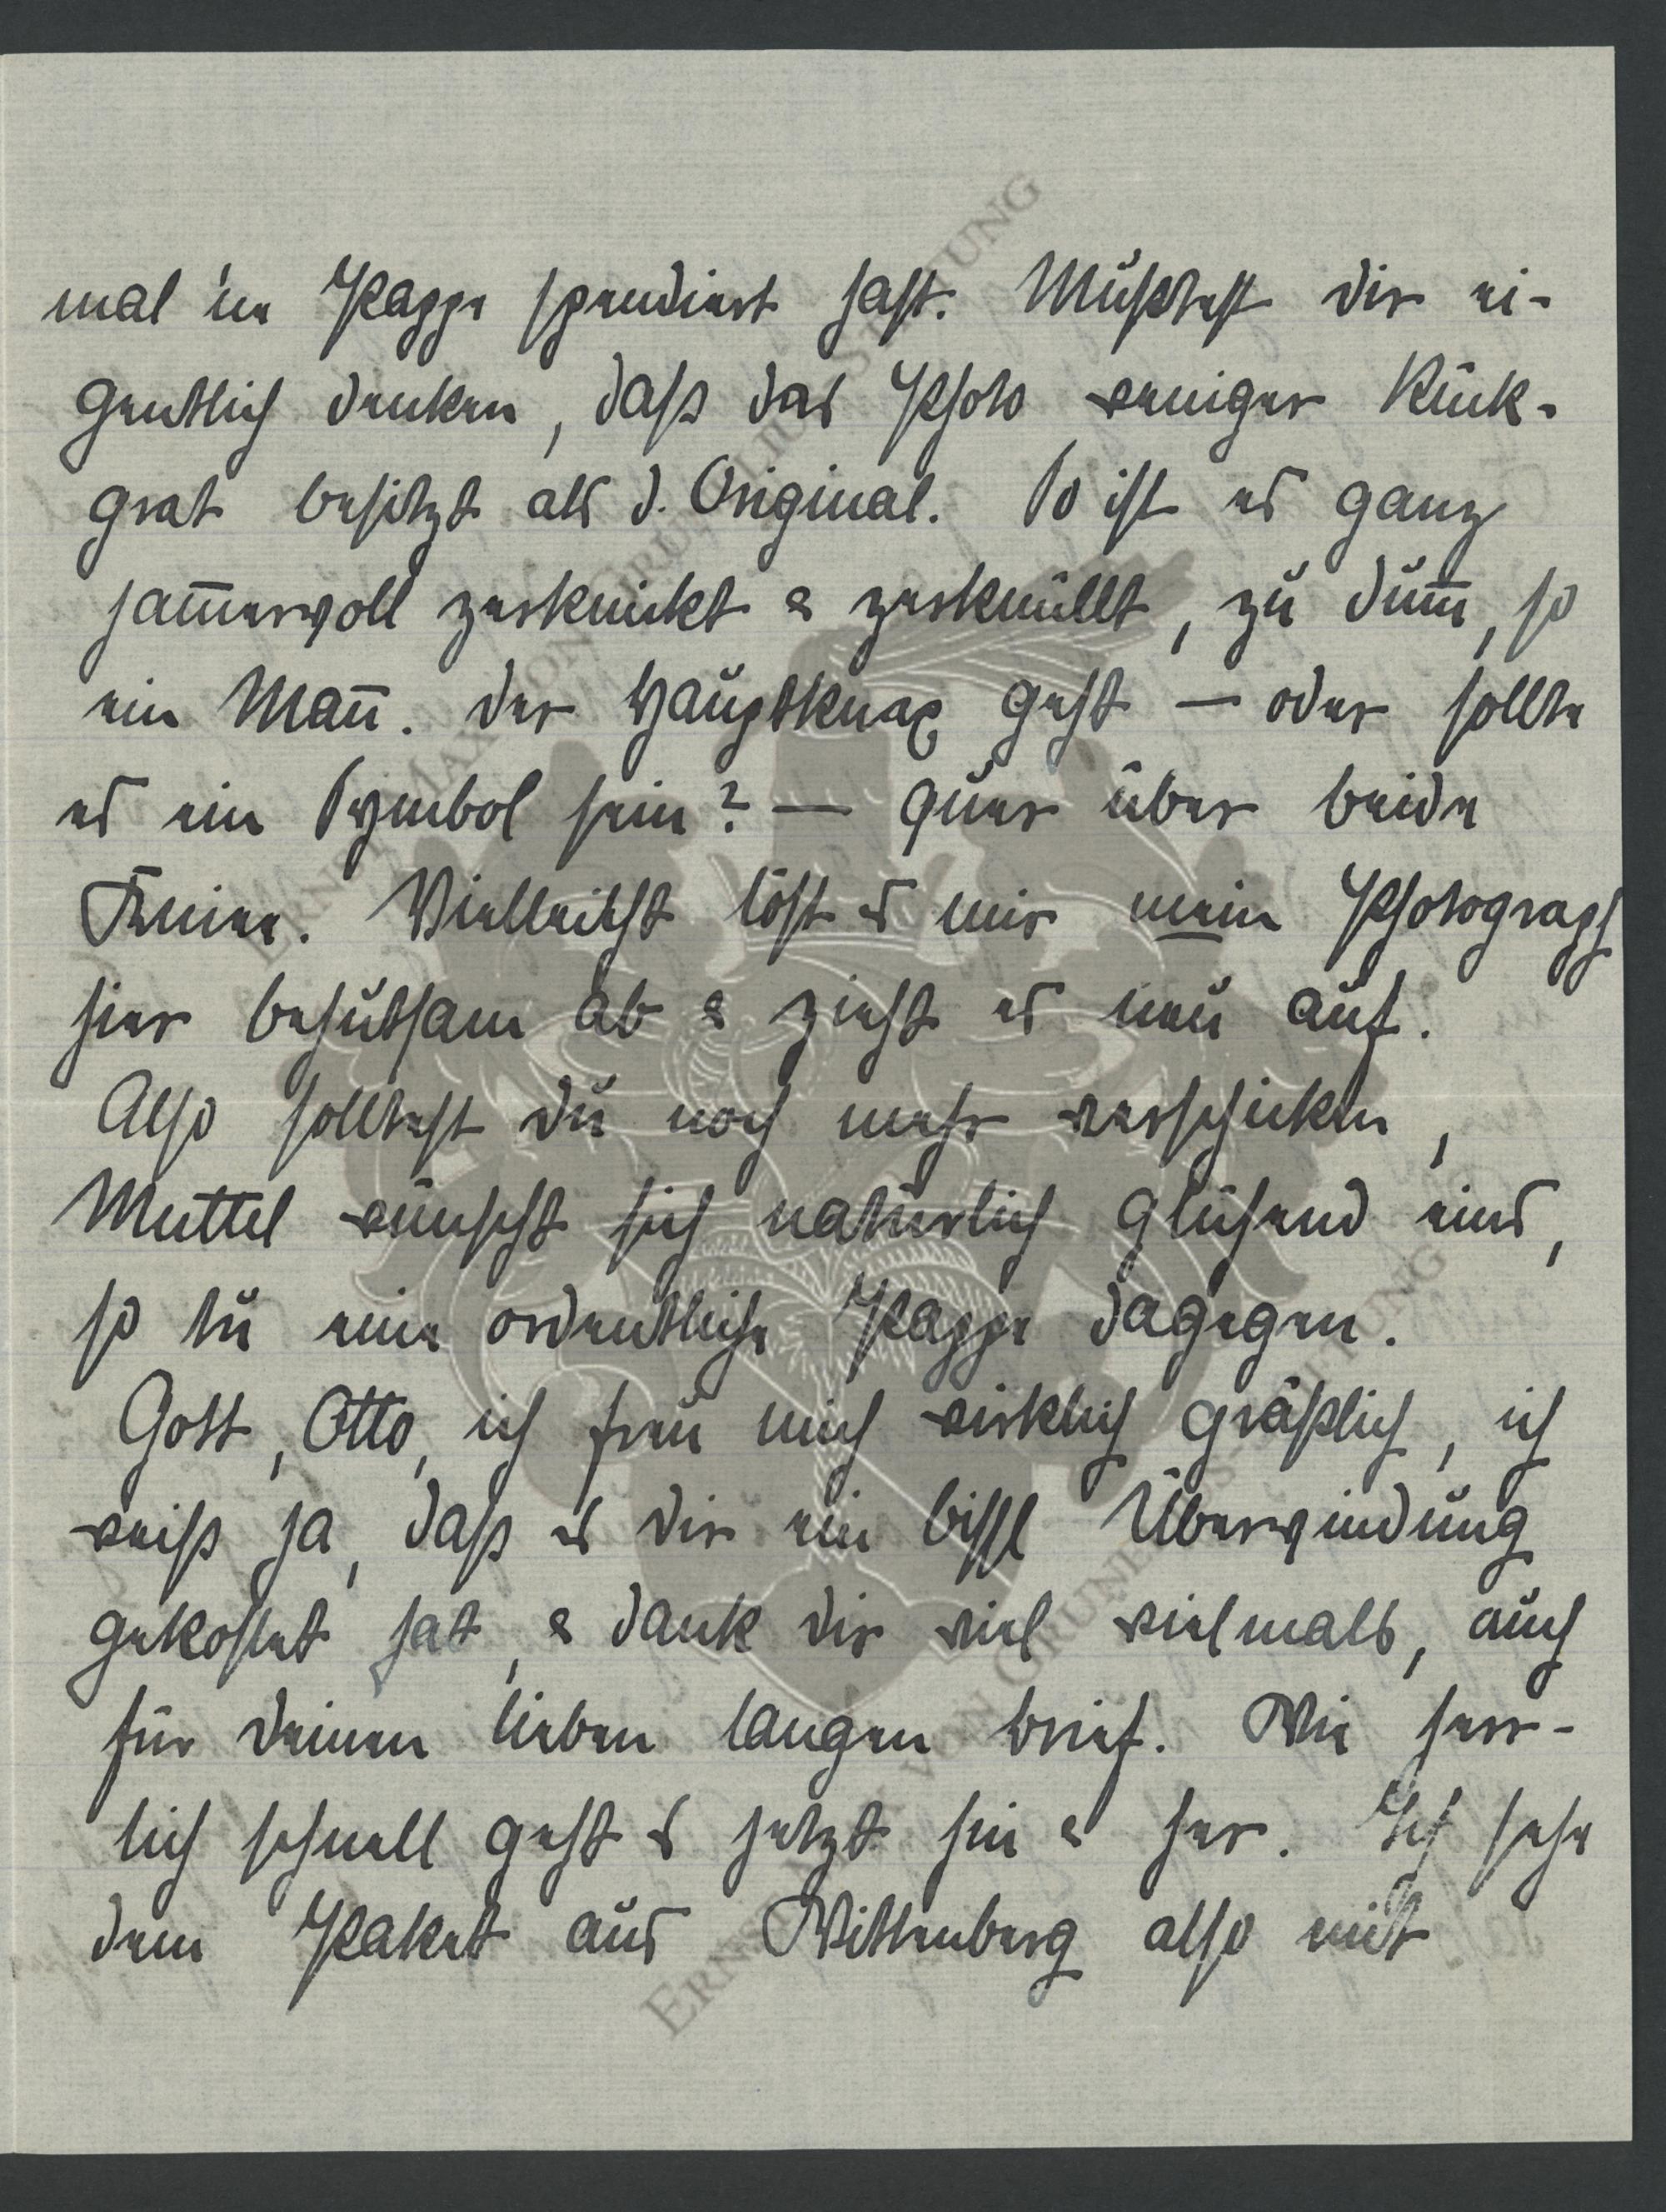 mal 'ne Pappe spendiert hast. Müßtest dir ei-
gentlich denken, daß das Photo weniger Rück-
grat besitzt als d. Original. So ist es ganz
jam̅ervoll zerknickt & zerknüllt, zu dum̅, so
ein Man̅. Der Hauptknax geht — oder sollte
es ein Symbol sein? — quer über beide
Kniee. Vielleicht löst es mir mein Photograph
hier behutsam ab & zieht es neu auf.
Also solltest du noch mehr verschicken,
Muttel wünscht sich natürlich glühend eins,
so tu eine ordentliche Pappe dagegen.
Gott, Otto, ich freu mich wirklich gräßlich, ich
weiß ja, daß es dir ein bissl Überwindung
gekostet hat, & dank dir viel vielmals, auch
für deinen lieben langen Brief. Wie herr-
lich schnell geht es jetzt hin & her. Ich sehe
dem Paket aus Wittenberg also mit
ERNST MAX VON GRUNELIUS STIFTUNG
ERNST MAX VON GRUNELIUS STIFTUNG